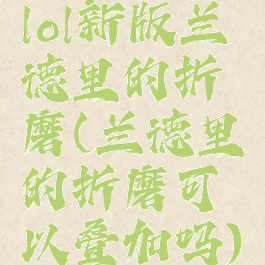 lol新版兰
德里的折
磨(兰德里
的折磨可
以叠加吗)